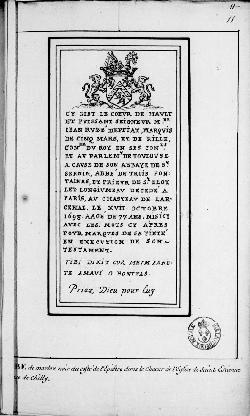 11
CY GIST LE COEUR DE HAULT
ET PUISSANT SEIGNEUR Mre
IEAN RUZE DEFFIAT, MARQUIS
DE CINQ MARS, ET DE RILLE,
CONer DU ROY EN SES CONls
ET AU PARLEMt DE TOULOUSE
A CAUSE DE SON ABBAYE DE St
SERNIN, ABBE DE TROIS FON-
TAINES, ET PRIEUR DE St ELOY
LES LONGIUMEAU DECEDÉ A
PARIS, AU CHASTEAU DE LAR-
CENAL, LE XVIII OCTOBRE
1698. AAGE DE 77 ANS, MIS ICY
AVEC LES MOTS CY APRES
POUR MARQUES DE SA PIETÉ
EN EXECUTION DE SON
TESTAMENT.
TIBI DIXIT COR MEUM
AMAVI
Priez Dieu pour luy
de marbre noir du costé de l'Epistre dans le Choeur de l'Eglise de Saint Estienne
de Chilly.